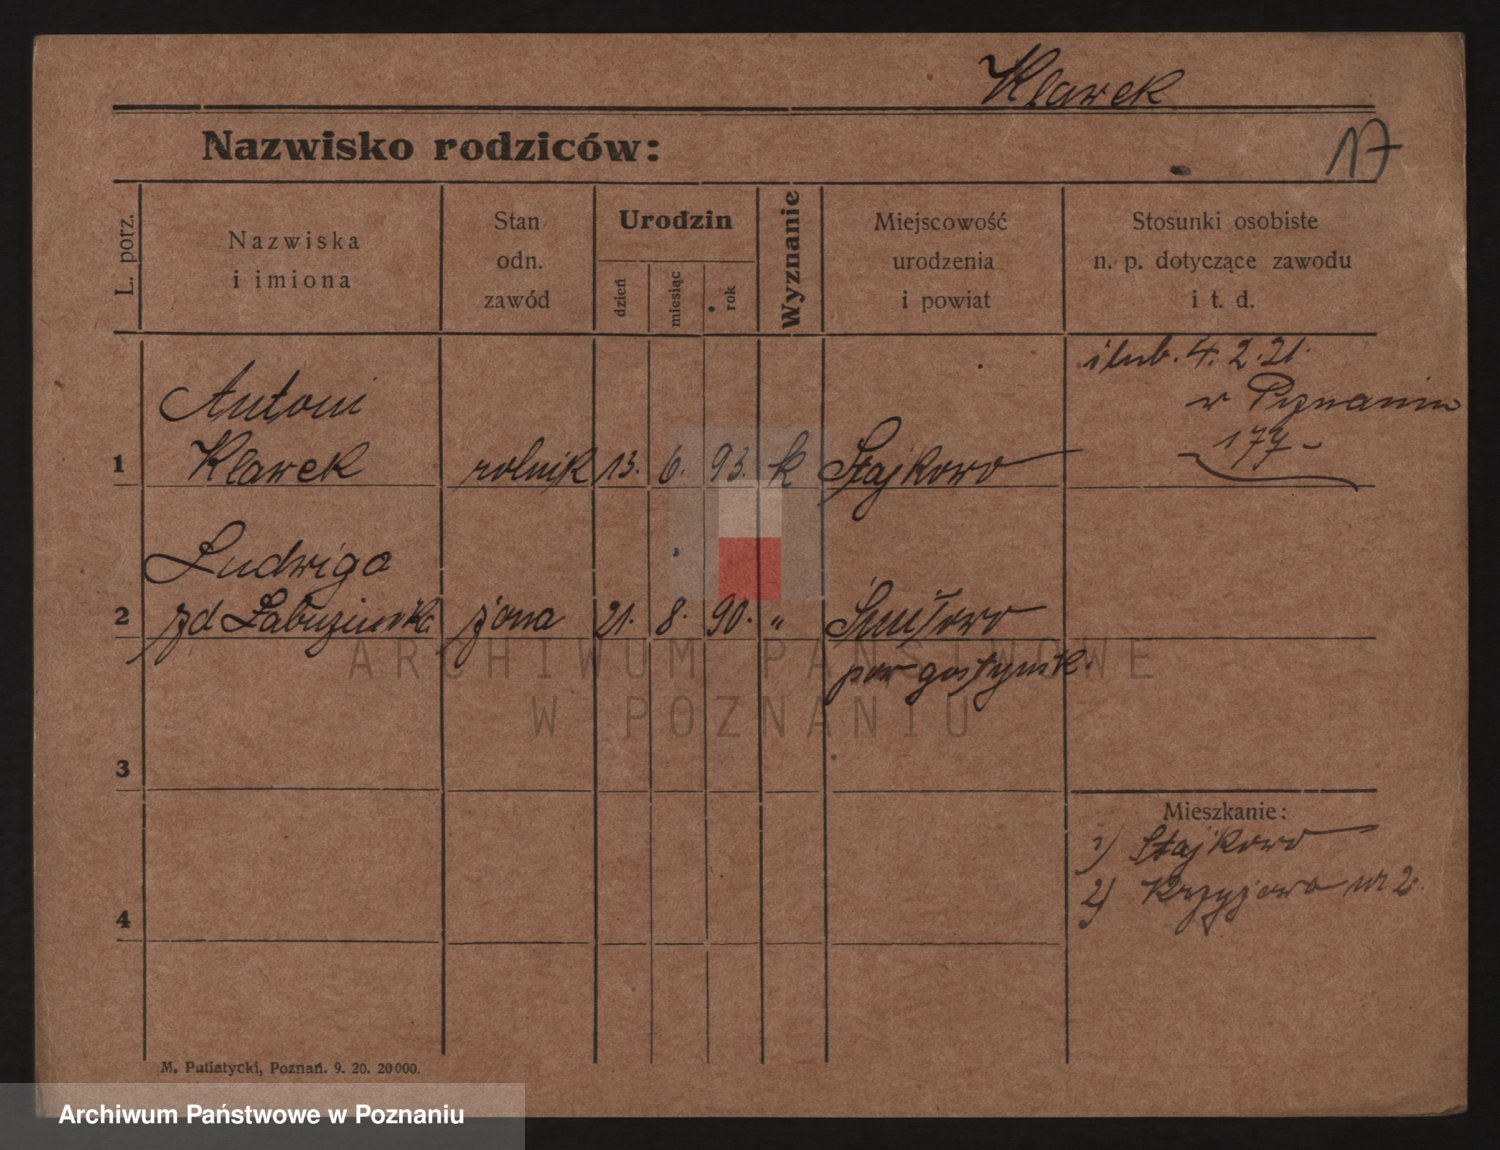 Klarek
Nazwisko rodziców:
17
L. porz.
Nazwiska
i imiona
Stan
odn.
zawód
Urodzin
dzień
miesiąc
rok
Wyznanie
Miejscowość
urodzenia
i powiat
Stosunki osobiste
n. p. dotyczące zawodu
i t. d.
ślub. 4. 2. 21.
w Poznaniu
177-
1
Antoni
Klarek
rolnik
13. 6. 93.
k
Stajkowo
2
Ludwiga
zd
żona
21. 8. 90.
"
pow gostyńsk.
3
Mieszkanie:
1) Stajkowo
2) Krzyżowa nr 2.
4
M. Putiatycki, Poznań. 9. 20. 20000.
ARCHIWUM PAŃSTWOWE
W POZNANIU
Archiwum Państwowe w Poznaniu